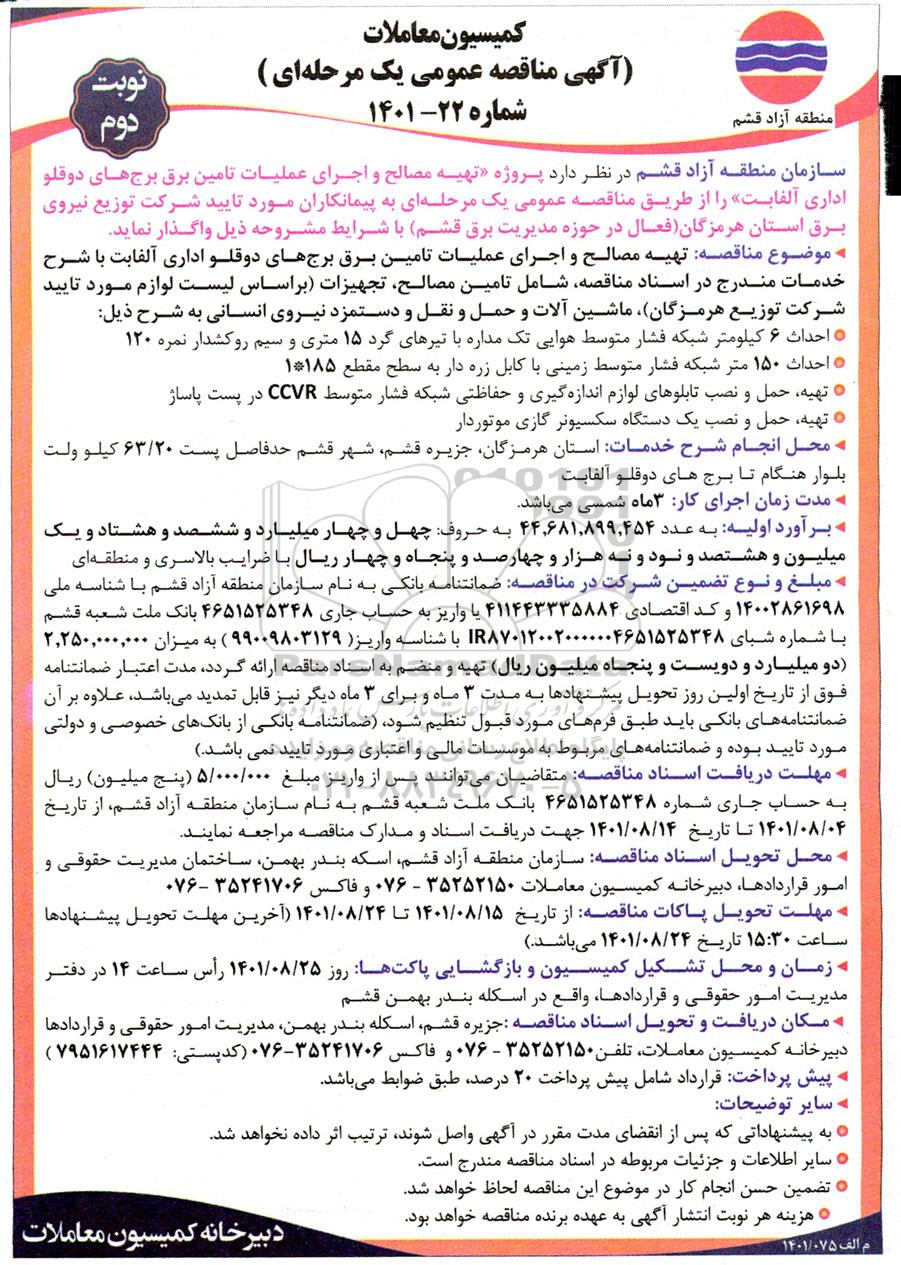 کمیسیون معاملات
(آگهی مناقصه عمومی یک مرحله‌ای)
شماره ۲۲- ۱۴۰۱
منطقه آزاد قشم
نوبت
دوم
سازمان منطقه آزاد قشم در نظر دارد پروژه «تهیه مصالح و اجرای عملیات تامین برق برج‌های دوقلو
اداری آلفابت» را از طریق مناقصه عمومی یک مرحله‌ای به پیمانکاران مورد تایید شرکت توزیع نیروی
برق استان هرمزگان(فعال در حوزه مدیریت برق قشم) با شرایط مشروحه ذیل واگذار نماید.
موضوع مناقصه: تهیه مصالح و اجرای عملیات تامین برق برج‌های دوقلو اداری آلفابت با شرح
خدمات مندرج در اسناد مناقصه، شامل تامین مصالح، تجهیزات (براساس لیست لوازم مورد تایید
شرکت توزیع هرمزگان)، ماشین آلات و حمل و نقل و دستمزد نیروی انسانی به شرح ذیل:
احداث ۶ کیلومتر شبکه فشار متوسط هوایی تک مداره با تیرهای گرد ۱۵ متری و سیم روکشدار نمره ۱۲۰
احداث ۱۵۰ متر شبکه فشار متوسط زمینی با کابل زره دار به سطح مقطع ۱۸۵*۱
تهیه، حمل و نصب تابلوهای لوازم اندازه‌گیری و حفاظتی شبکه فشار متوسط CCVR در پست پاساژ
تهیه، حمل و نصب یک دستگاه سکسیونر گازی موتوردار
محل انجام شرح خدمات: استان هرمزگان، جزیره قشم، شهر قشم حدفاصل پست ۶۳/۲۰ کیلو ولت
بلوار هنگام تا برج های دوقلو آلفابت
مدت زمان اجرای کار: ۳ماه شمسی می‌باشد.
برآورد اولیه: به عدد ۴۴,۶۸۱,۸۹۹,۴۵۴ به حروف: چهل و چهار میلیارد و ششصد و هشتاد و یک
میلیون و هشتصد و نود و نه هزار و چهارصد و پنجاه و چهار ریال با ضرایب بالاسری و منطقه‌ای
مبلغ و نوع تضمین شرکت در مناقصه: ضمانتنامه بانکی به نام سازمان منطقه آزاد قشم با شناسه ملی
۱۴۰۰۲۸۶۱۶۹۸ و کد اقتصادی ۴۱۱۴۴۳۳۳۵۸۸۴ یا واریز به حساب جاری ۴۶۵۱۵۲۵۳۴۸ بانک ملت شعبه قشم
با شماره شبای IR۸۷۰۱۲۰۰۲۰۰۰۰۰۰۴۶۵۱۵۲۵۳۴۸ با شناسه واریز( ۹۹۰۰۹۸۰۳۱۲۹ ) به میزان ۲,۲۵۰,۰۰۰,۰۰۰
(دو میلیارد و دویست و پنجاه میلیون ریال) تهیه و منضم به اسناد مناقصه ارائه گردد، مدت اعتبار ضمانتنامه
فوق از تاریخ اولین روز تحویل پیشنهادها به مدت ۳ ماه و برای ۳ ماه دیگر نیز قابل تمدید می‌باشد، علاوه بر آن
ضمانتنامه‌های بانکی باید طبق فرم‌های مورد قبول تنظیم شود، (ضمانتنامه بانکی از بانک‌های خصوصی و دولتی
مورد تایید بوده و ضمانتنامه‌های مربوط به موسسات مالی و اعتباری مورد تایید نمی باشد.)
مهلت دریافت اسناد مناقصه: متقاضیان می‌توانند پس از واریز مبلغ ۵/۰۰۰/۰۰۰ (پنج میلیون) ریال
به حساب جاری شماره ۴۶۵۱۵۲۵۳۴۸ بانک ملت شعبه قشم به نام سازمان منطقه آزاد قشم، از تاریخ
۱۴۰۱/۰۸/۰۴ تا تاریخ ۱۴۰۱/۰۸/۱۴ جهت دریافت اسناد و مدارک مناقصه مراجعه نمایند.
محل تحویل اسناد مناقصه: سازمان منطقه آزاد قشم، اسکه بندر بهمن، ساختمان مدیریت حقوقی و
امور قراردادها، دبیرخانه کمیسیون معاملات ۳۵۲۵۲۱۵۰ - ۰۷۶ و فاکس ۳۵۲۴۱۷۰۶ -۰۷۶
مهلت تحویل پاکات مناقصه: از تاریخ ۱۴۰۱/۰۸/۱۵ تا ۱۴۰۱/۰۸/۲۴ (آخرین مهلت تحویل پیشنهادها
ساعت ۱۵:۳۰ تاریخ ۱۴۰۱/۰۸/۲۴ می‌باشد.)
زمان و محل تشکیل کمیسیون و بازگشایی پاکت‌ها: روز ۱۴۰۱/۰۸/۲۵ رأس ساعت ۱۴ در دفتر
مدیریت امور حقوقی و قراردادها، واقع در اسکله بندر بهمن قشم
مکان دریافت و تحویل اسناد مناقصه :جزیره قشم، اسکله بندر بهمن، مدیریت امور حقوقی و قراردادها
دبیرخانه کمیسیون معاملات، تلفن۳۵۲۵۲۱۵۰ - ۰۷۶ و فاکس ۳۵۲۴۱۷۰۶-۰۷۶ (کدپستی: ۷۹۵۱۶۱۷۴۴۴ )
پیش پرداخت: قرارداد شامل پیش پرداخت ۲۰ درصد، طبق ضوابط می‌باشد.
سایر توضیحات:
به پیشنهاداتی که پس از انقضای مدت مقرر در آگهی واصل شوند، ترتیب اثر داده نخواهد شد.
سایر اطلاعات و جزئیات مربوطه در اسناد مناقصه مندرج است.
تضمین حسن انجام کار در موضوع این مناقصه لحاظ خواهد شد.
هزینه هر نوبت انتشار آگهی به عهده برنده مناقصه خواهد بود.
دبیرخانه کمیسیون معاملات
م الف ۱۴۰۱/۰۷۵